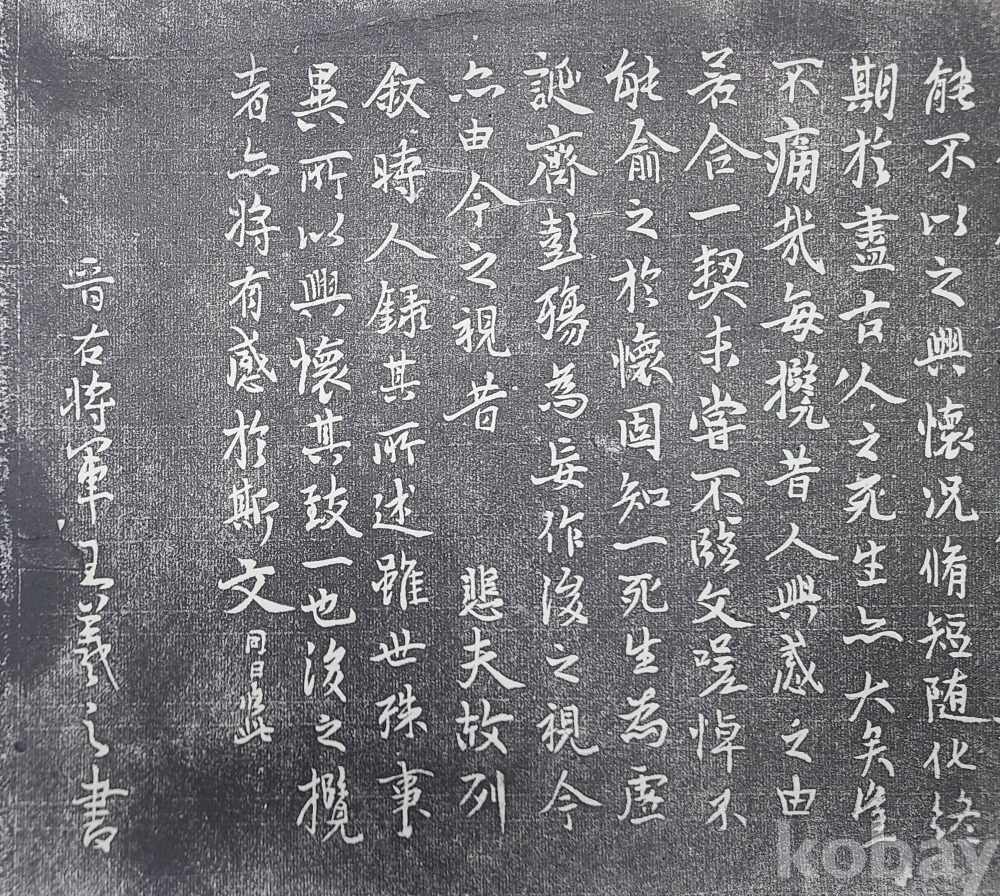 能不以之興懷况脩短随化終
期於盡古人之死生亦大矣豈
不痛哉每攬昔人興感之由
若合一契未嘗不臨文嗟悼不
能喻之於懷固知一死生為虛
誕齊彭殤為妄作後之視今
亦由今之視昔 悲夫故列
叙時人錄其所述雖世殊事
異所以興懷其致一也後之攬
者亦将有感於斯文
同日
晋右将軍王羲之書
kobay